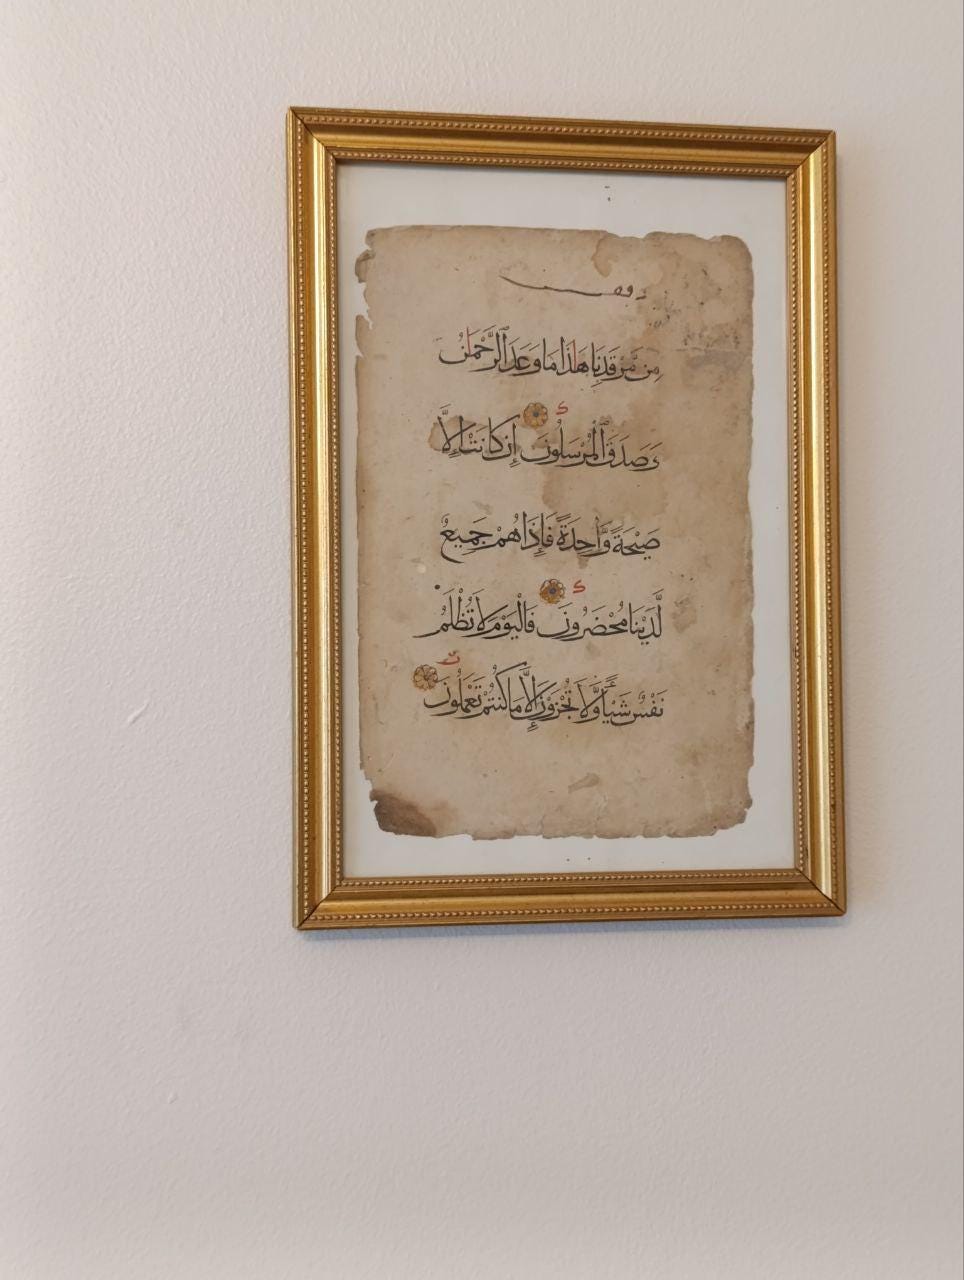 وقف
مِن مَّرْقَدِنَا هَٰذَا مَا وَعَدَ ٱلرَّحْمَٰنُ
وَصَدَقَ ٱلْمُرْسَلُونَ إِن كَانَتْ إِلَّا
صَيْحَةً وَٰحِدَةً فَإِذَا هُمْ جَمِيعٌ
لَّدَيْنَا مُحْضَرُونَ فَالْيَوْمَ لَا تُظْلَمُ
نَفْسٌ شَيْـًٔا وَلَا تُجْزَوْنَ إِلَّا مَا كُنتُمْ تَعْمَلُونَ